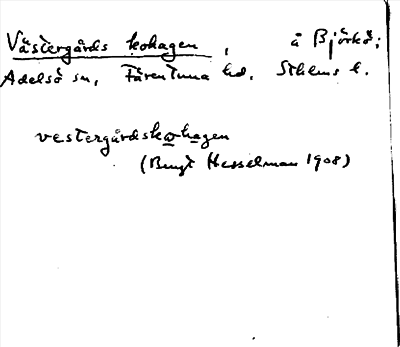 Västergårds kohagen, å Björkö;
Adelsö sn, Färentuna hd. Sthlms l.
vestergårdskohagen
(Bengt Hesselman 1908)